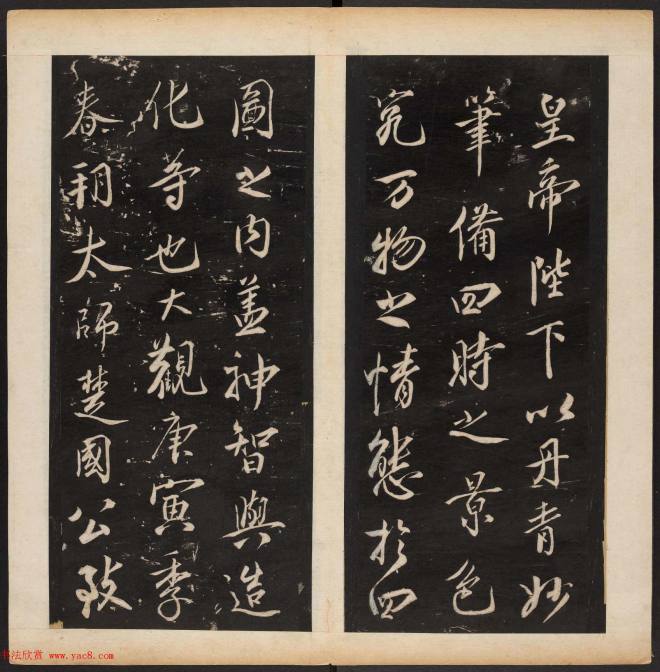 皇帝陛下以丹青妙
筆備四時之景色
究万物之情態於四
圖之内盖神智與造
化等也大觀庚寅季
春朔太師楚國公致
书法欣赏 www.yac8.com